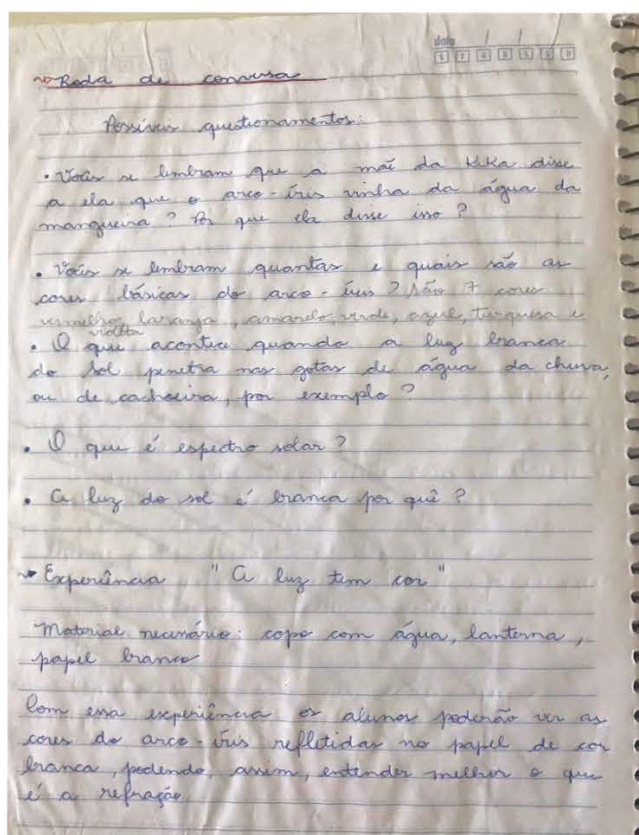 data / /
S T Q Q S S D
Roda de conversa
Possíveis questionamentos:
• Vocês se lembram que a mãe da Kika disse
a ela que o arco-íris vinha da água da
mangueira? Por que ela disse isso?
• Vocês se lembram quantas e quais são as
cores básicas do arco-íris? São 7 cores
vermelho, laranja, amarelo, verde, azul, turquesa e
violeta
• O que acontece quando a luz branca
do sol penetra nas gotas de água da chuva,
ou de cachoeira, por exemplo?
• O que é espectro solar?
• A luz do sol é branca por quê?
→ Experiência "A luz tem cor"
Material necessário: copo com água, lanterna,
papel branco
Com essa experiência os alunos poderão ver as
cores do arco-íris refletidas no papel de cor
branca, podendo, assim, entender melhor o que
é a refração.